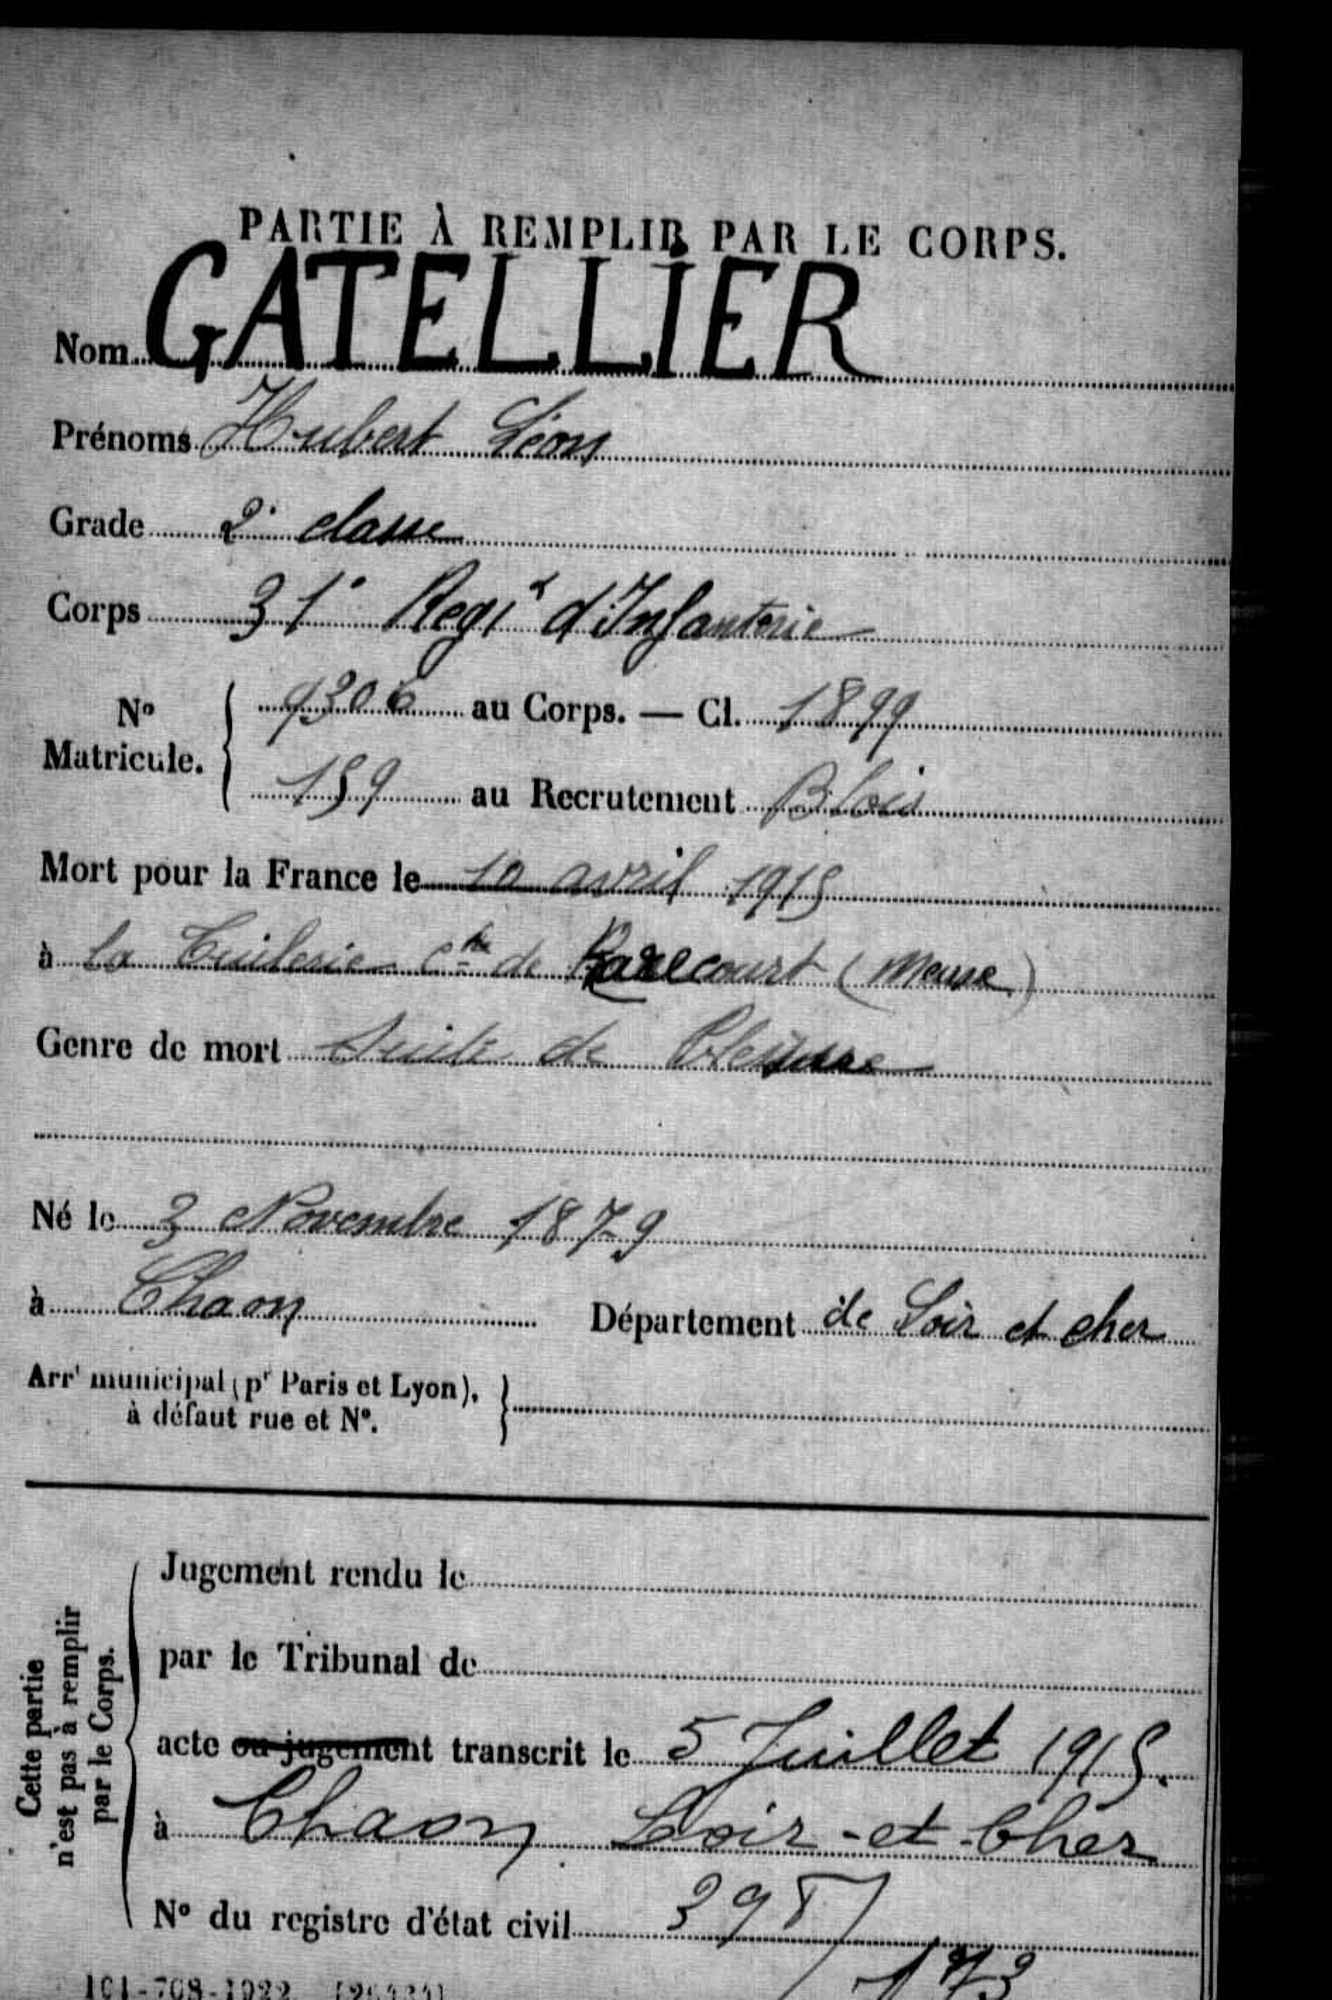 PARTIE À REMPLIR PAR LE CORPS.
Nom GATELLIER
Prénoms Hubert Léon
Grade 2e classe
Corps 31e Regit d'Infanterie
No Matricule. { 9306 au Corps. — Cl. 1899
159 au Recrutement Blois
Mort pour la France le 10 avril 1915
à la Tuilerie Cne de Rarécourt (Meuse)
Genre de mort Suite de blessure
Né le 3 Novembre 1879
à Chaon Département de Loir et cher
Arrt municipal (pr Paris et Lyon), à défaut rue et No. }
Cette partie n'est pas à remplir par le Corps.
Jugement rendu le
par le Tribunal de
acte ou jugement transcrit le 5 Juillet 1915.
à Chaon Loir-et-Cher
No du registre d'état civil
173
101-708-1922. [26434]